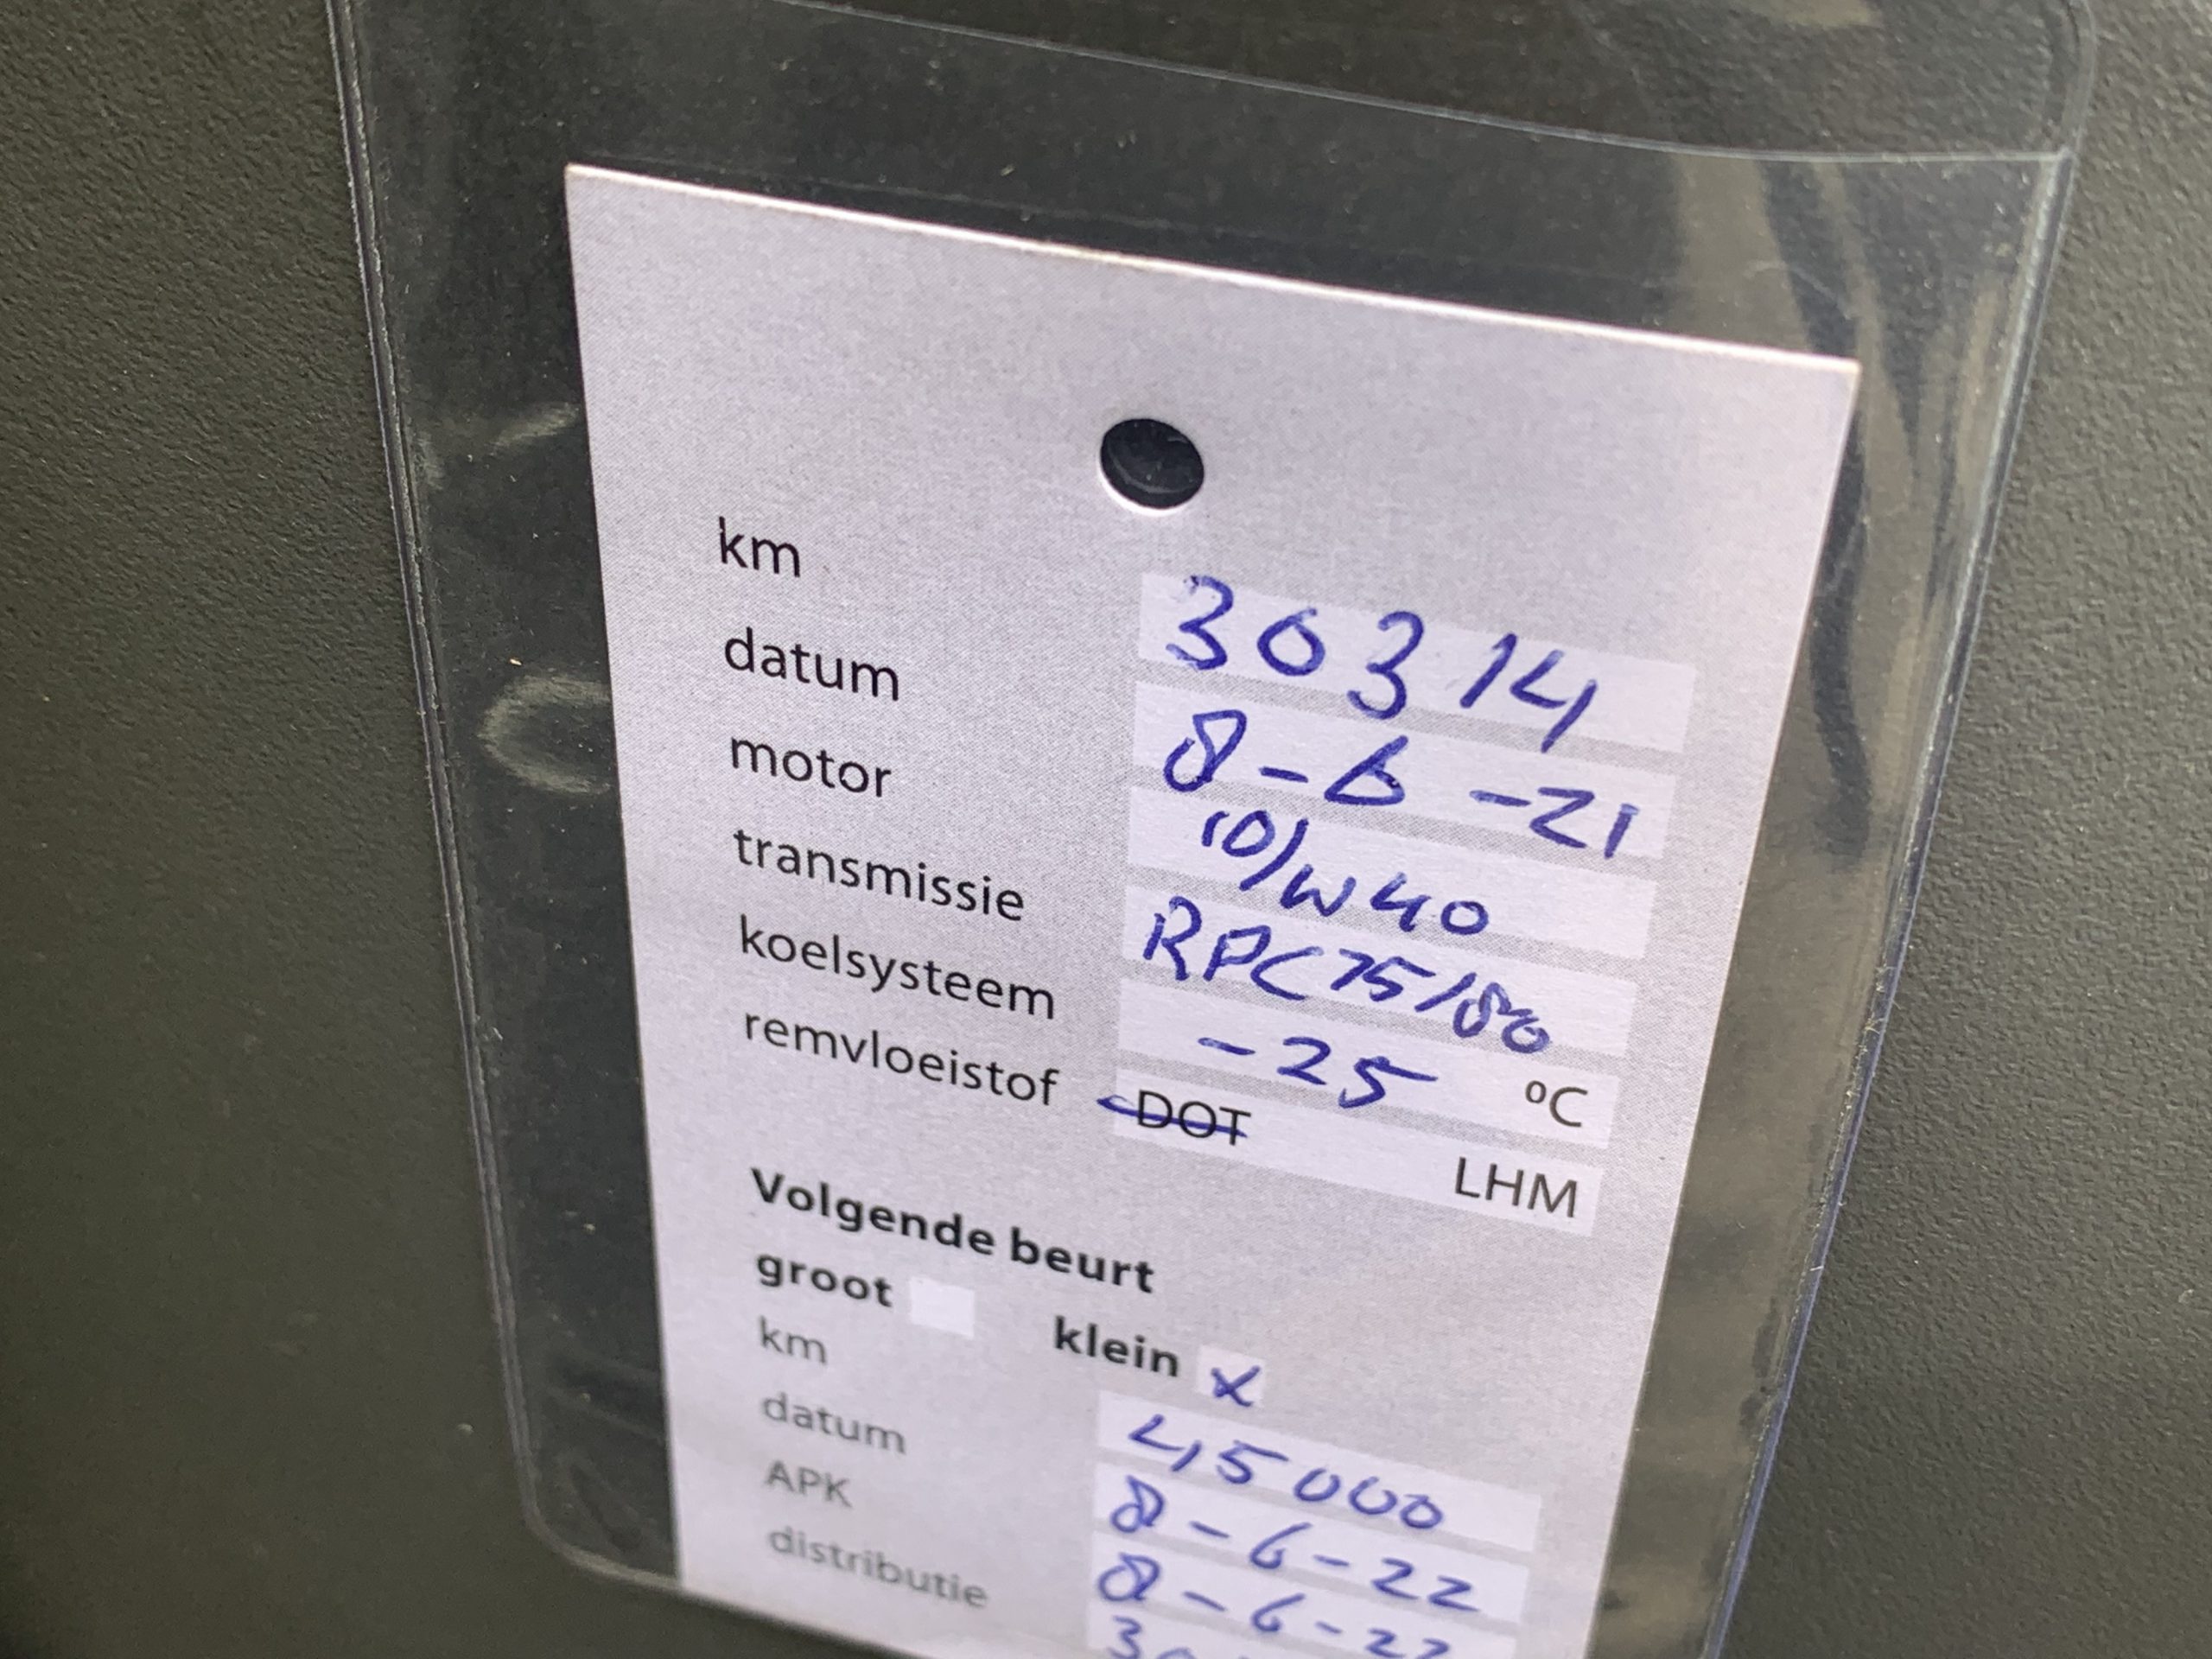 km 30314
datum 8-6-21
motor 10/W40
transmissie RPC75/80
koelsysteem -25 ºC
remvloeistof DOT LHM
Volgende beurt
groot klein x
km 45000
datum 8-6-22
APK 8-6-22
distributie